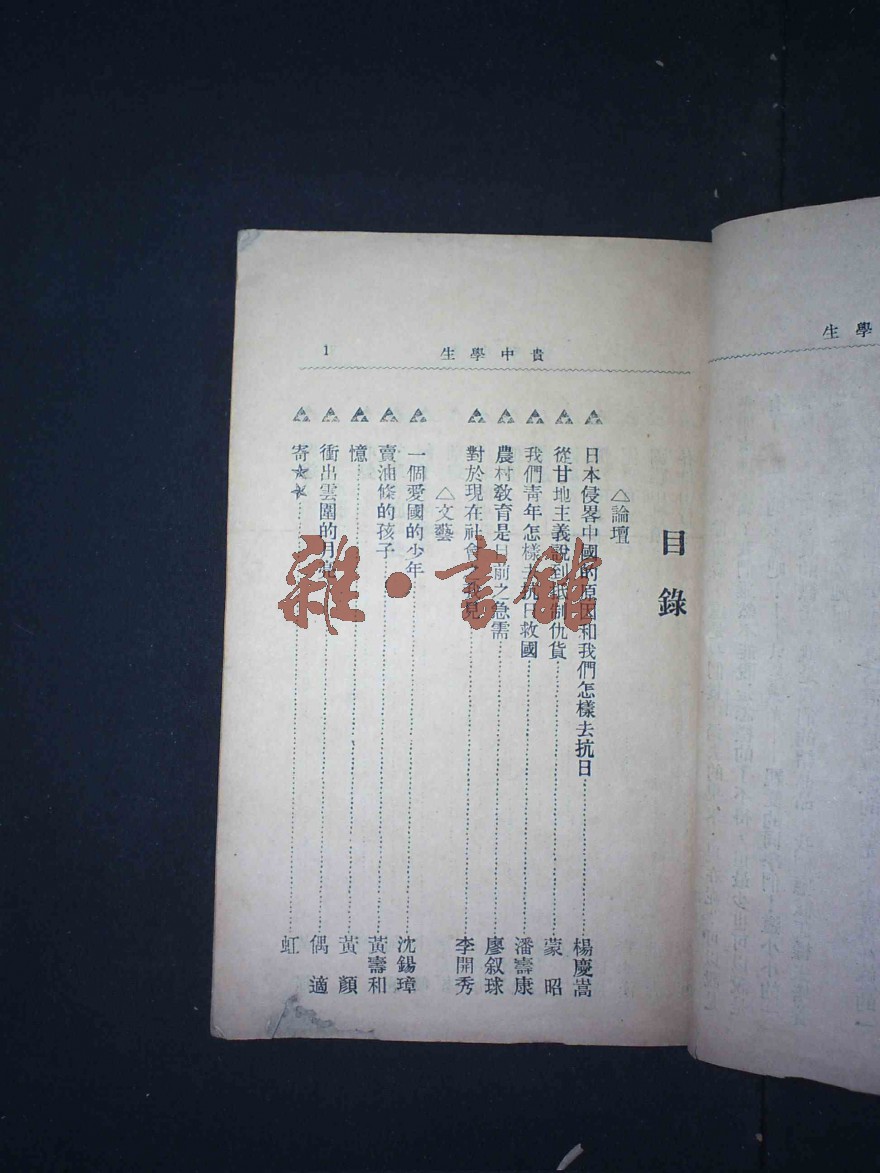 貴中學生
1
目錄
△論壇
日本侵畧中國的原因和我們怎樣去抗日 楊慶嵩
從甘地主義說到抵制仇貨 蒙昭
我們青年怎樣去抗日救國 潘壽康
農村教育是目前之急需 廖叙球
對於現在社會之我見 李開秀
△文藝
一個愛國的少年 沈錫璋
賣油條的孩子 黃壽和
憶 黃顏
衝出雲圍的月亮 偶適
寄★★ 虹
學生
雜·書館